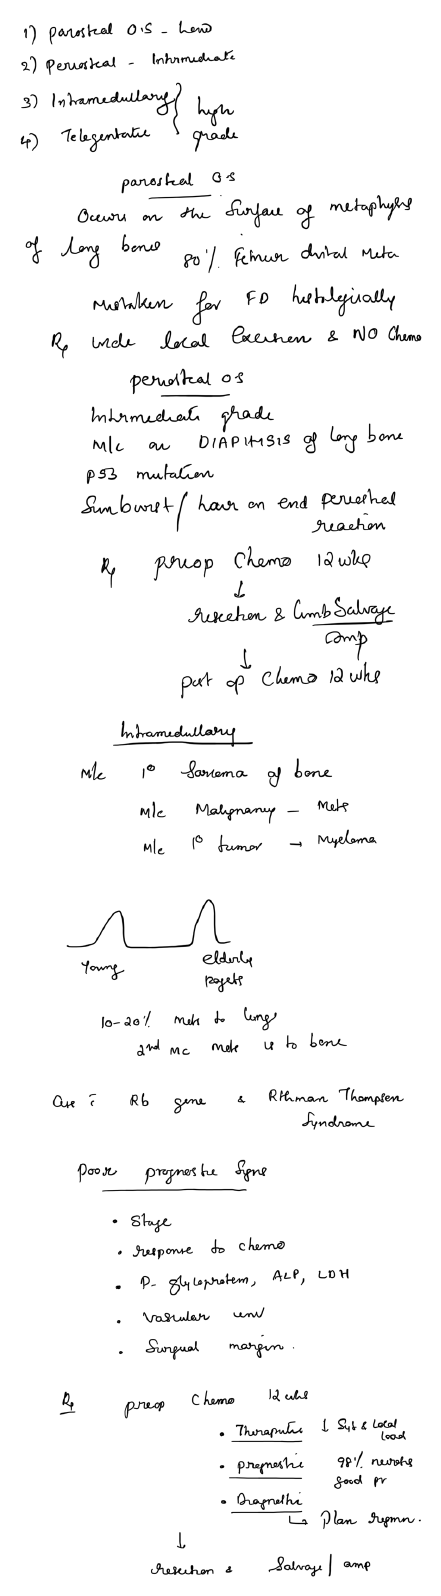 1) parosteal O.S - Low
2) Periosteal - Intermediate
3) Intramedullary } high
4) Telegentatic } grade
parosteal OS
Occurs on the surface of metaphysis
of long bones 80% Femur distal Meta
Mistaken for FD histologically
Rx wide local Excision & NO Chemo
periosteal OS
Intermediate grade
M/c on DIAPHYSIS of long bone
p53 mutation
Sunburst / hair on end periosteal
reaction
Rx preop Chemo 12 wks
↓
resection & Limb Salvage
amp
↓
post op Chemo 12 wks
Intramedullary
M/c 1° Sarcoma of bone
M/c Malignancy - Mets
M/c 1° tumor → Myeloma
young elderly
pagets
10-20% mets to lungs
2nd MC mets is to bone
Ass c̄ Rb gene & Rthman Thompson
Syndrome
Poor prognostic signs
• Stage
• response to chemo
• P-glycoprotein, ALP, LDH
• Vascular inv
• Surgical margin.
Rx preop Chemo 12 wks
• Theraputic ↓ Sys & Local
load
• prognostic 98% necrosis
good pr
• Diagnostic
↳ Plan regmn.
↓
resection & Salvage / amp